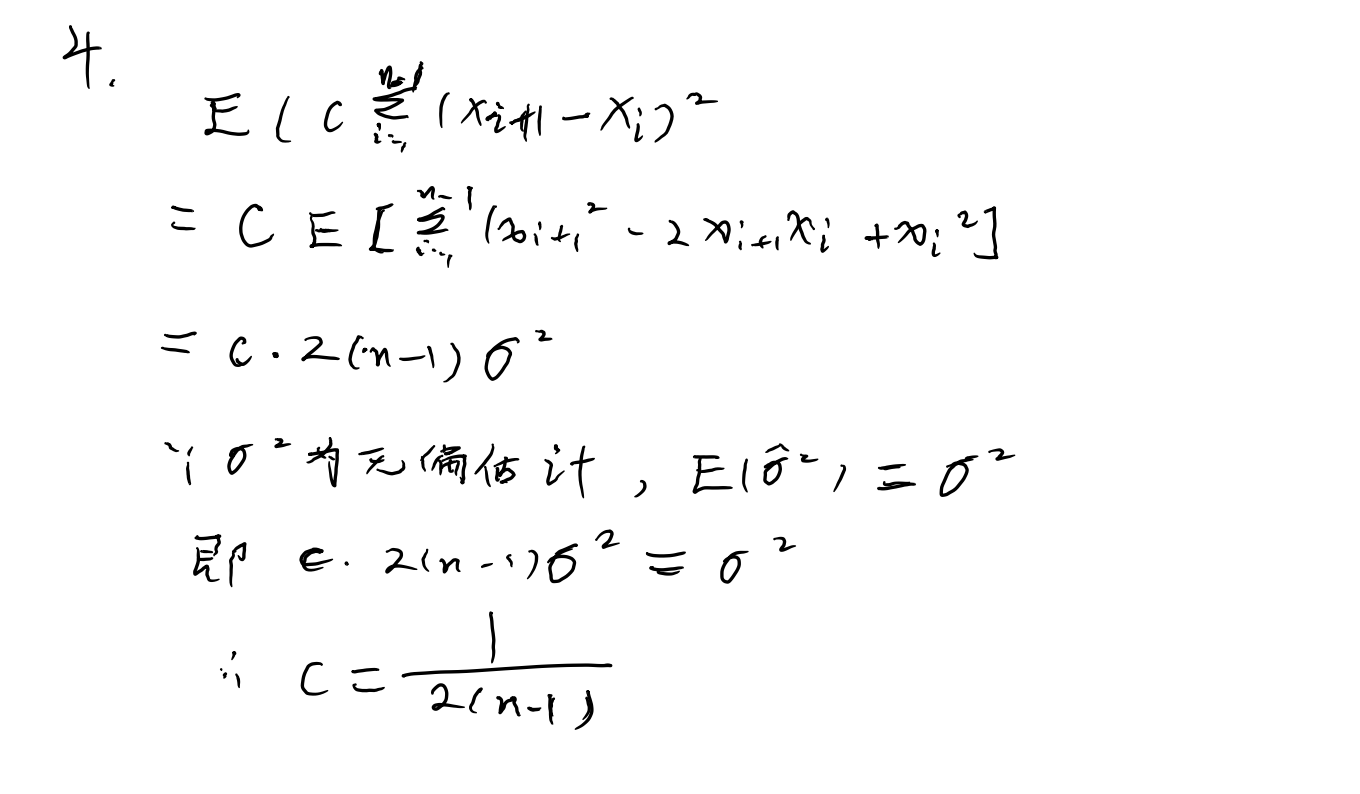 4.
E ( C ∑_{i=1}^{n-1} (X_{i+1} - X_i)²
= C E [ ∑_{i=1}^{n-1} (x_{i+1}² - 2 x_{i+1} x_i + x_i² ]
= c · 2(n-1) σ²
∵ σ² 为无偏估计 , E(σ̂²) = σ²
即 c · 2(n-1)σ² = σ²
∴ C = \frac{1}{2(n-1)}